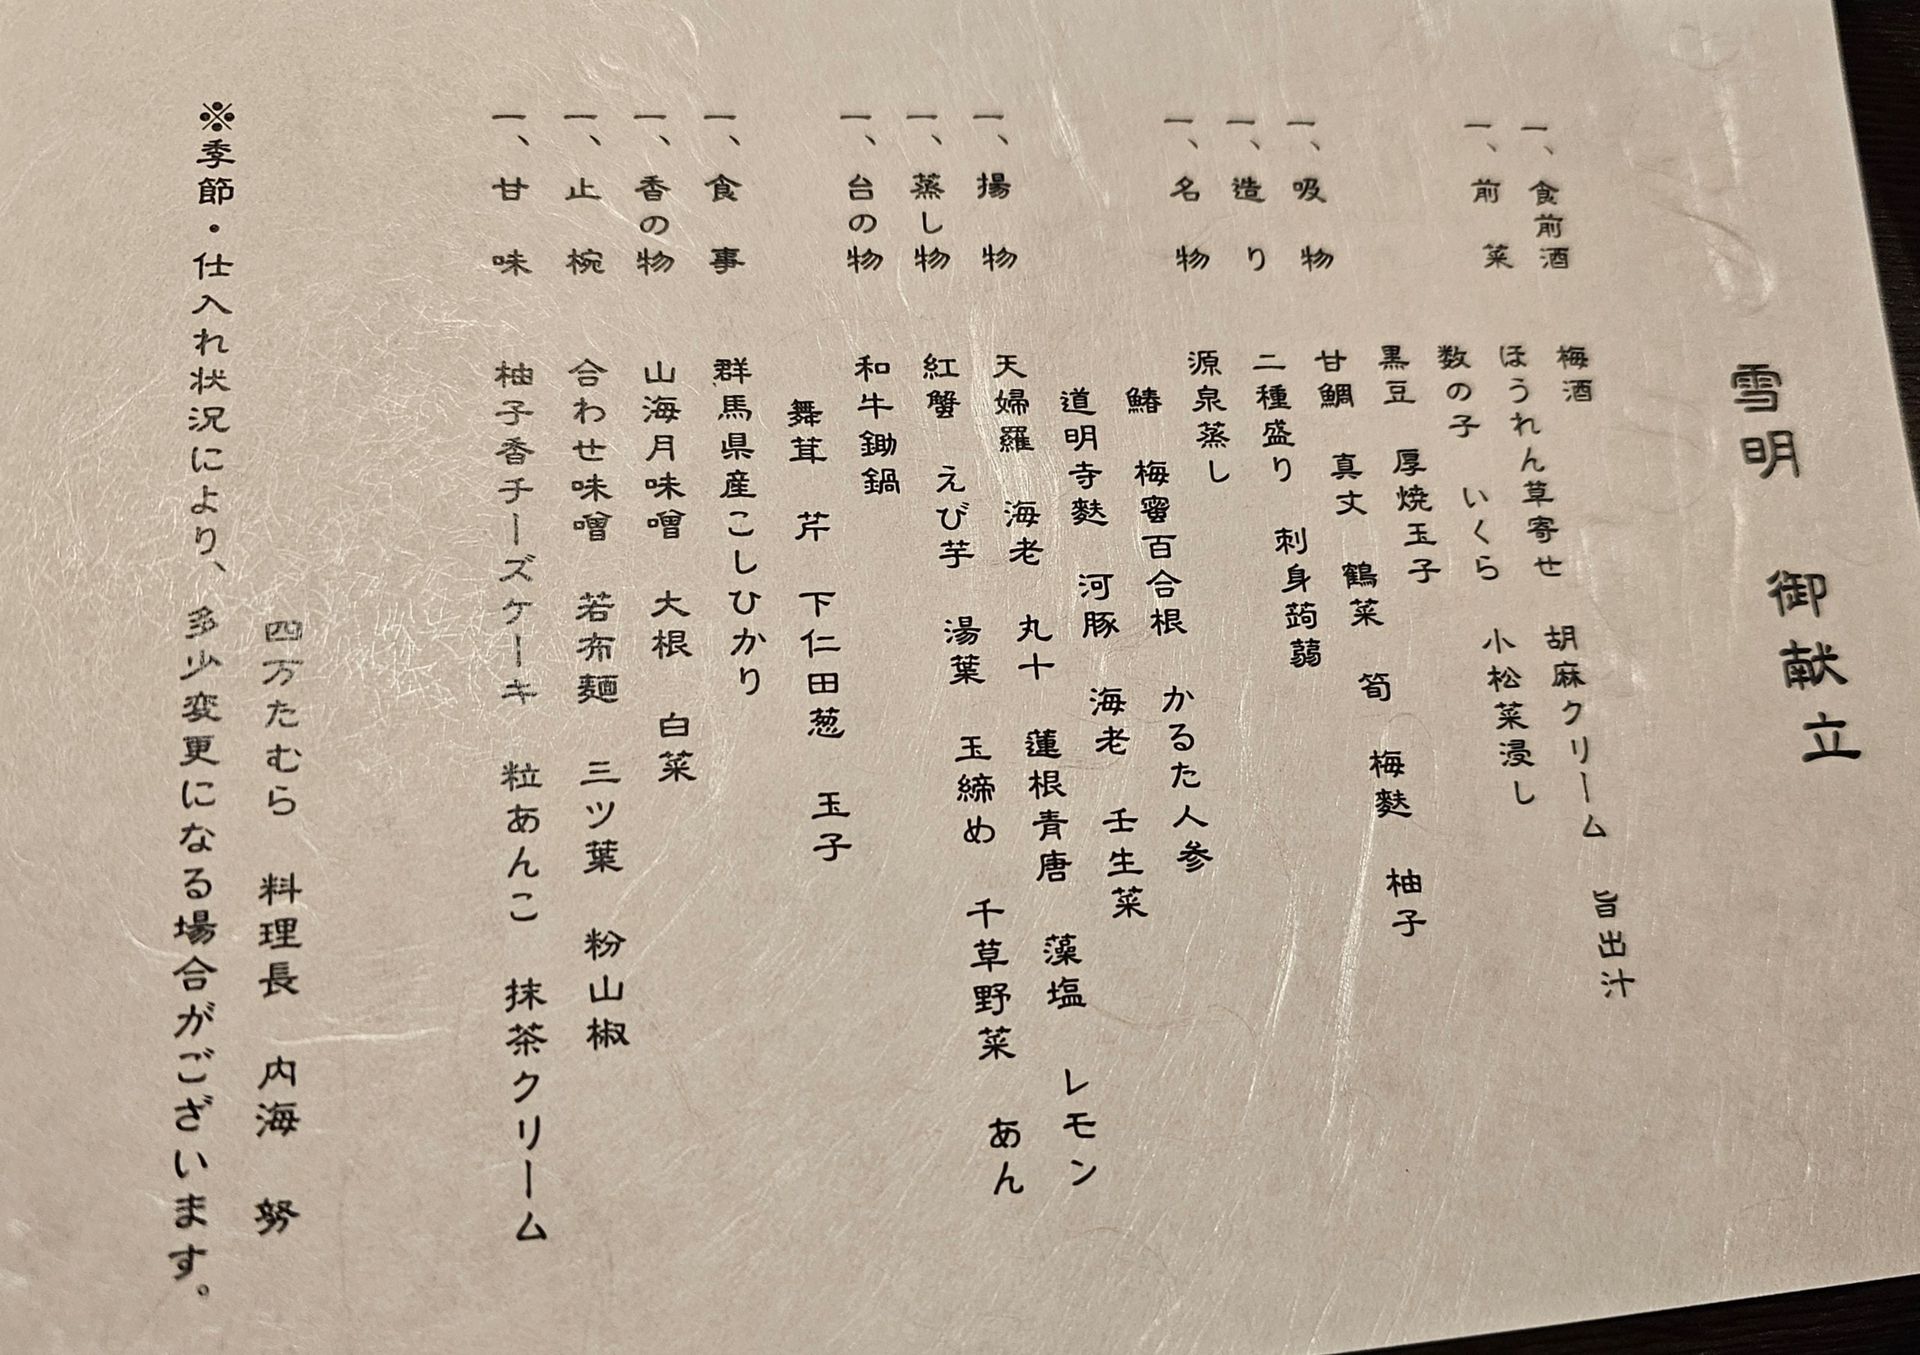 雪明 御献立
一、食前酒 梅酒
一、前菜 ほうれん草寄せ 胡麻クリーム 旨出汁
数の子 いくら 小松菜浸し
黒豆 厚焼玉子
一、吸物 甘鯛 真丈 鶴菜 筍 梅麩 柚子
一、造り 二種盛り 刺身蒟蒻
一、名物 源泉蒸し
鰆 梅蜜百合根 かるた人参
道明寺麩 河豚 海老 壬生菜
一、揚物 天婦羅 海老 丸十 蓮根青唐 藻塩 レモン
一、蒸し物 紅蟹 えび芋 湯葉 玉締め 千草野菜 あん
一、台の物 和牛鋤鍋
舞茸 芹 下仁田葱 玉子
一、食事 群馬県産こしひかり
一、香の物 山海月味噌 大根 白菜
一、止椀 合わせ味噌 若布麺 三ツ葉 粉山椒
一、甘味 柚子香チーズケーキ 粒あんこ 抹茶クリーム
四万たむら 料理長 内海 努
※季節・仕入れ状況により、多少変更になる場合がございます。